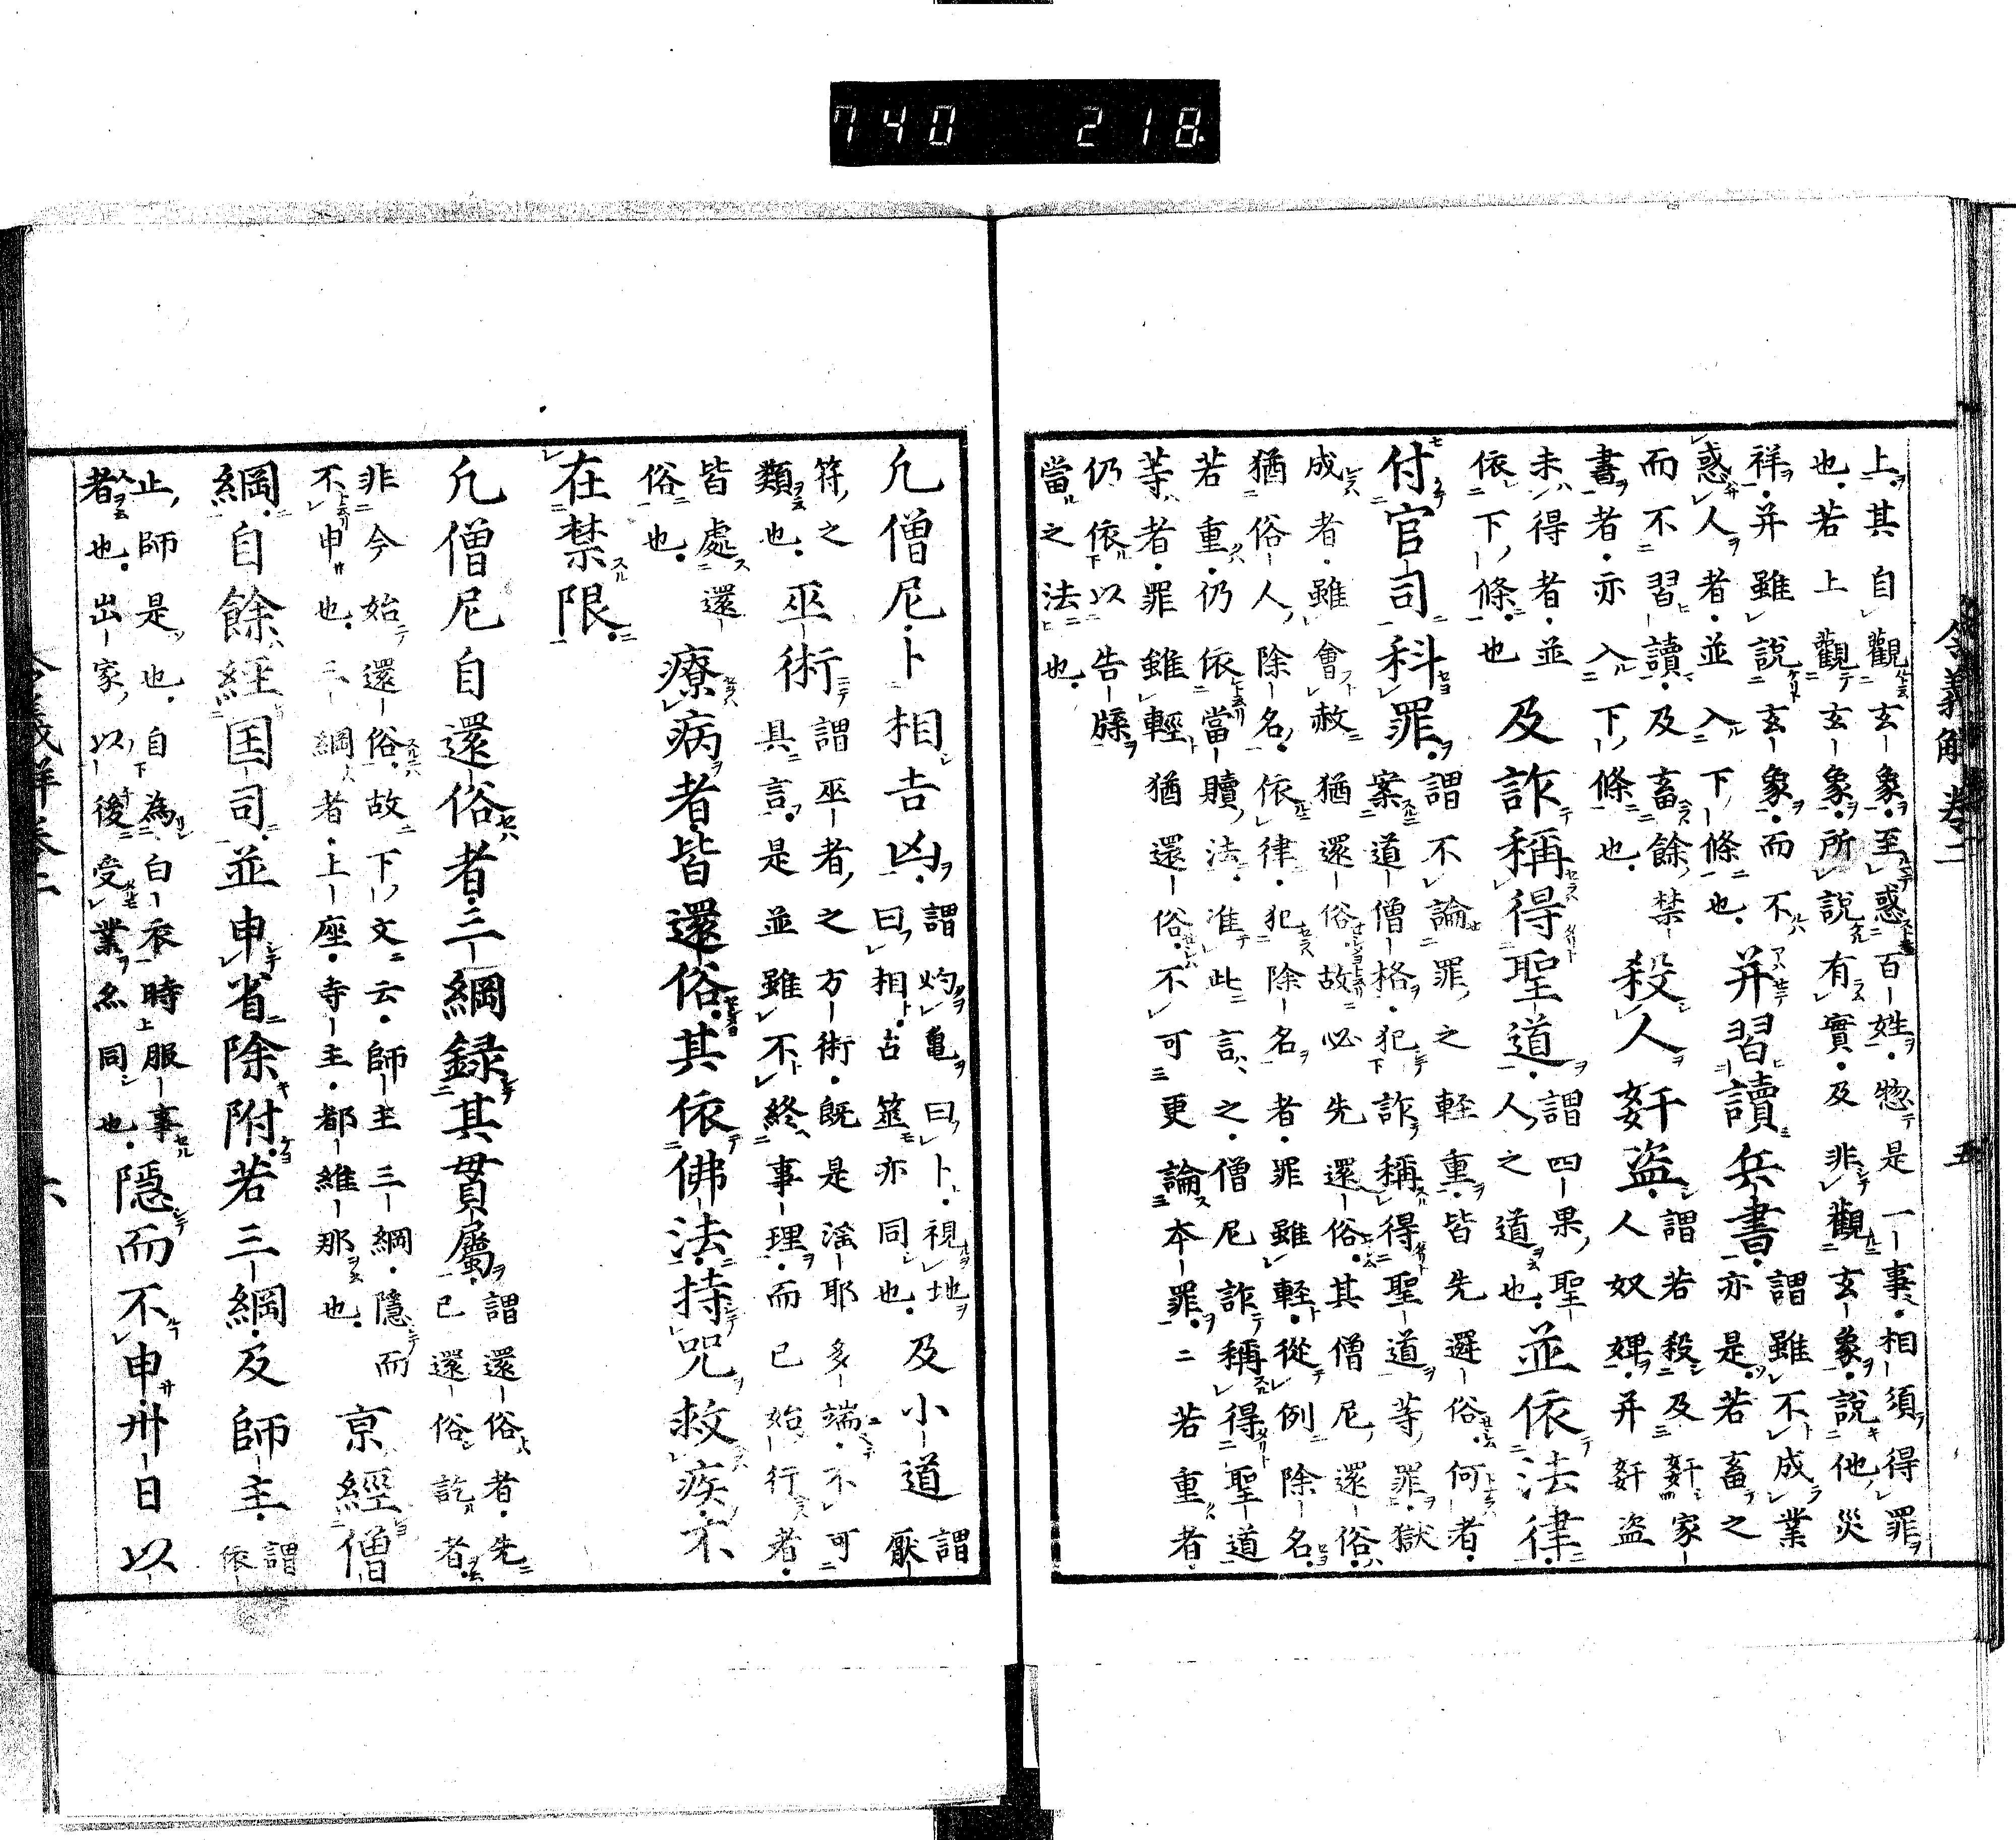 740 218
令義解 卷二 五
上其自觀玄象至惑百姓惣是一事相須得罪
也若上觀玄象所說有實及非觀玄象說他災
祥并雖說玄象而不
惑人者並入下條也
并習讀兵書
謂雖不成業
亦是若畜之
而不習讀及畜餘禁
書者亦入下條也
殺人奸盜
謂若殺及姧家
人奴婢并姧盜
未得者並
依下條也
及詐稱得聖道
謂四果聖
人之道也
並依法律
付官司科罪
謂不論罪之輕重皆先還俗何者
案道僧格犯詐稱得聖道等罪獄
成者雖會赦猶還俗故必先還俗其僧尼還俗
猶俗人除名依律犯除名者罪雖輕從例除名
若重仍依當贖法准此言之僧尼詐稱得聖道
等者罪雖輕猶還俗不可更論本罪二若重者
仍依以告牒
當之法也
凢僧尼卜相吉凶
謂灼龜曰卜視地
曰相占筮亦同也
及小道
謂
厭
符之
類也
巫術
謂巫者之方術既是滛耶多端不可
具言是並雖不終事理而已始行者
皆處還
俗也
療病者皆還俗其依佛法持咒救疾不
在禁限
凢僧尼自還俗者三綱録其貫屬
謂還俗者先
已還俗訖者
非今始還俗故下文云師主三綱隱而
不申也三綱者上座寺主都維那也
亰經僧
綱自餘經国司並申省除附若三綱及師主
謂
依
止師是也自為白衣時服事
者也出家以後受業亦同也
隱而不申卅日以
令義解卷二 六